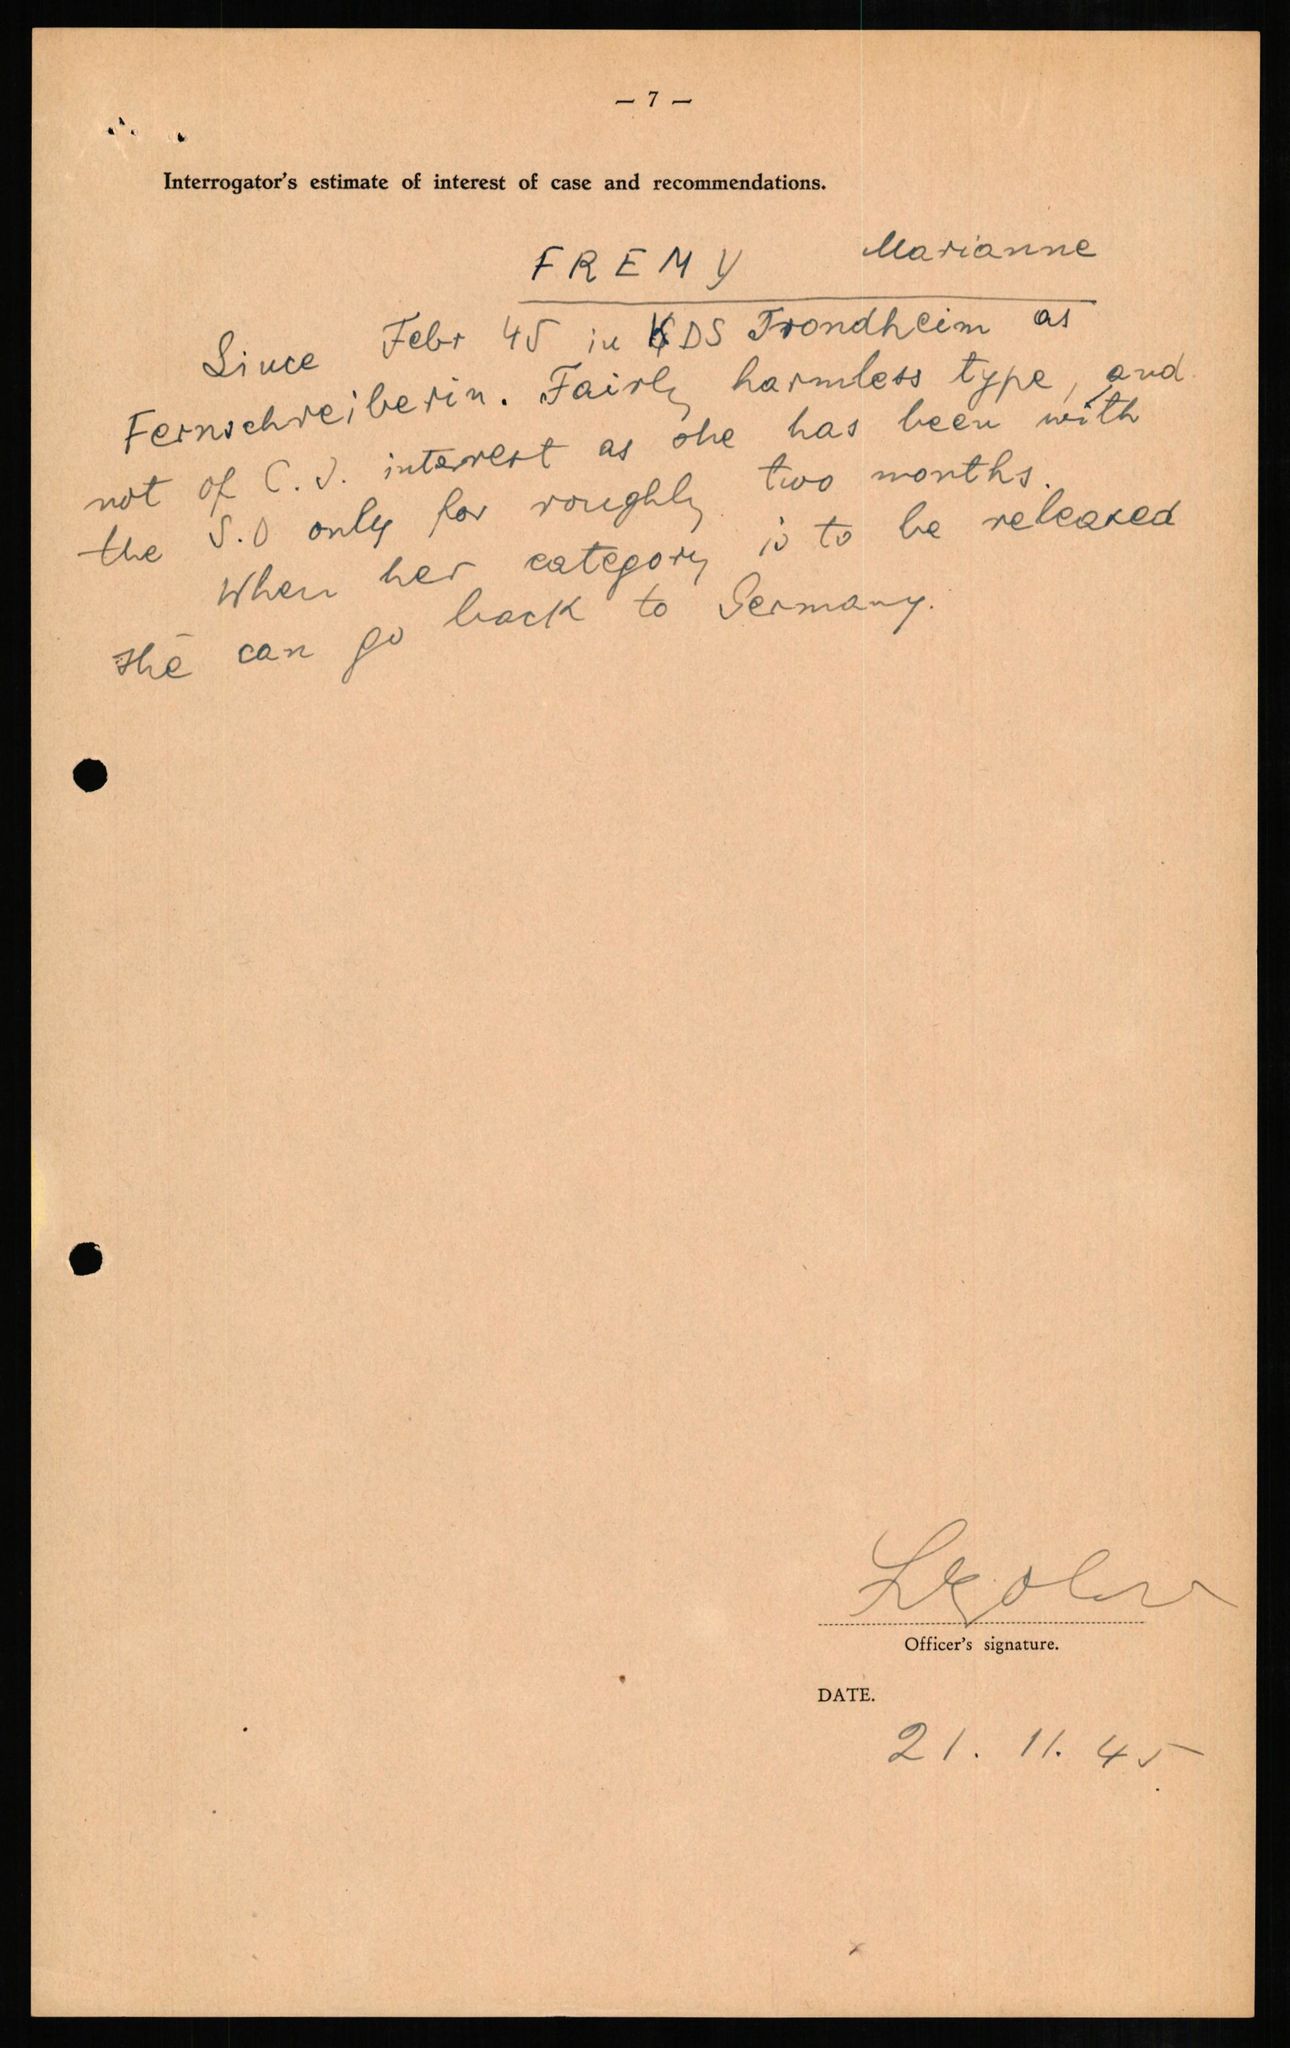 — 7 —
Interrogator's estimate of interest of case and recommendations.
FREMY Marianne
Since Febr 45 in KDS Trondheim as
Fernschreiberin. Fairly harmless type, and
not of C.I. interest as she has been with
the S.D only for roughly two months.
When her category is to be released
she can go back to Germany.
Officer's signature.
DATE.
21. 11. 45